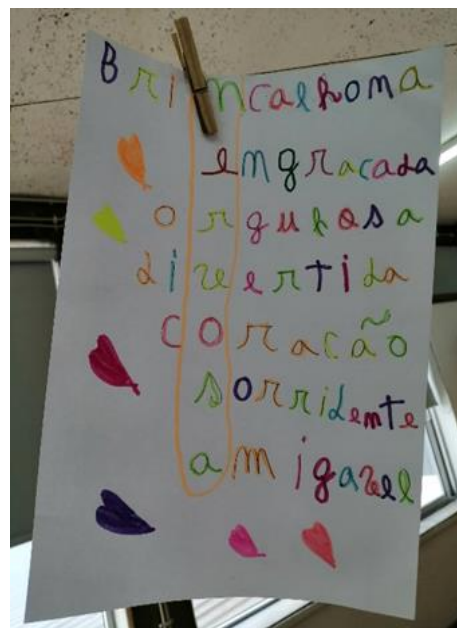 Brincalhona
engracada
orguhosa
divertida
coração
sorridente
amigavel